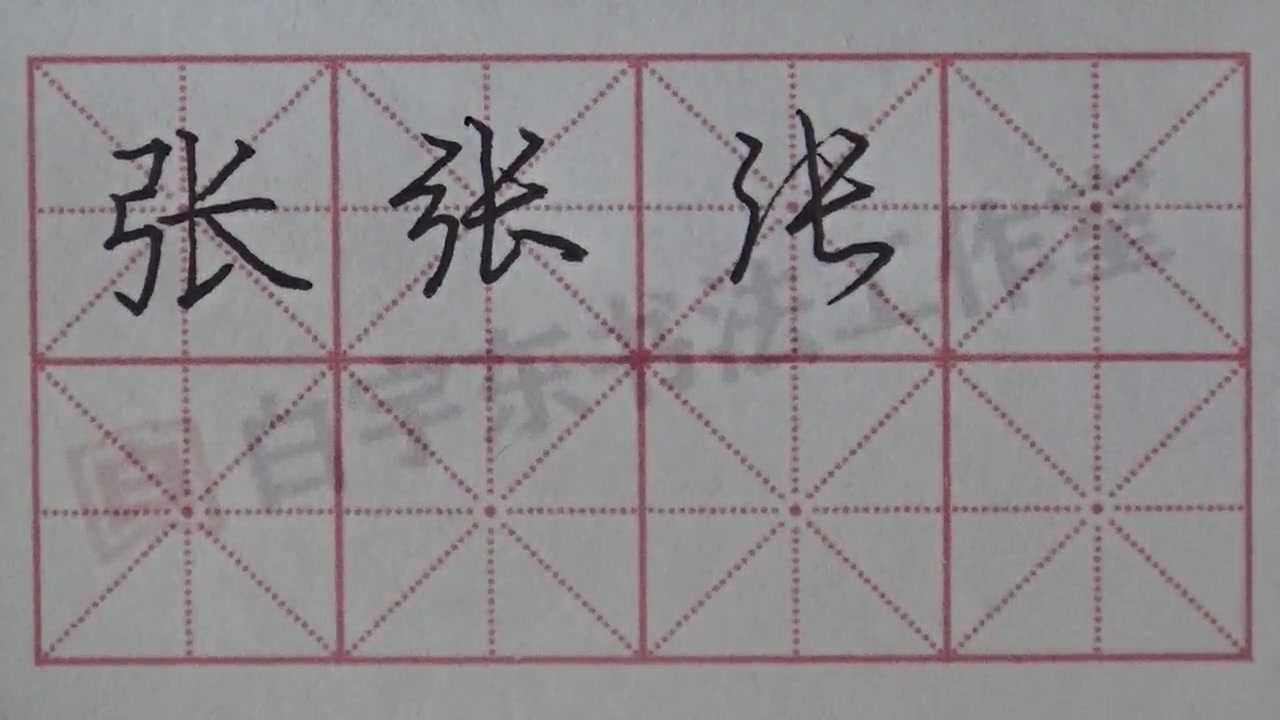 张张张
白学东书法工作室